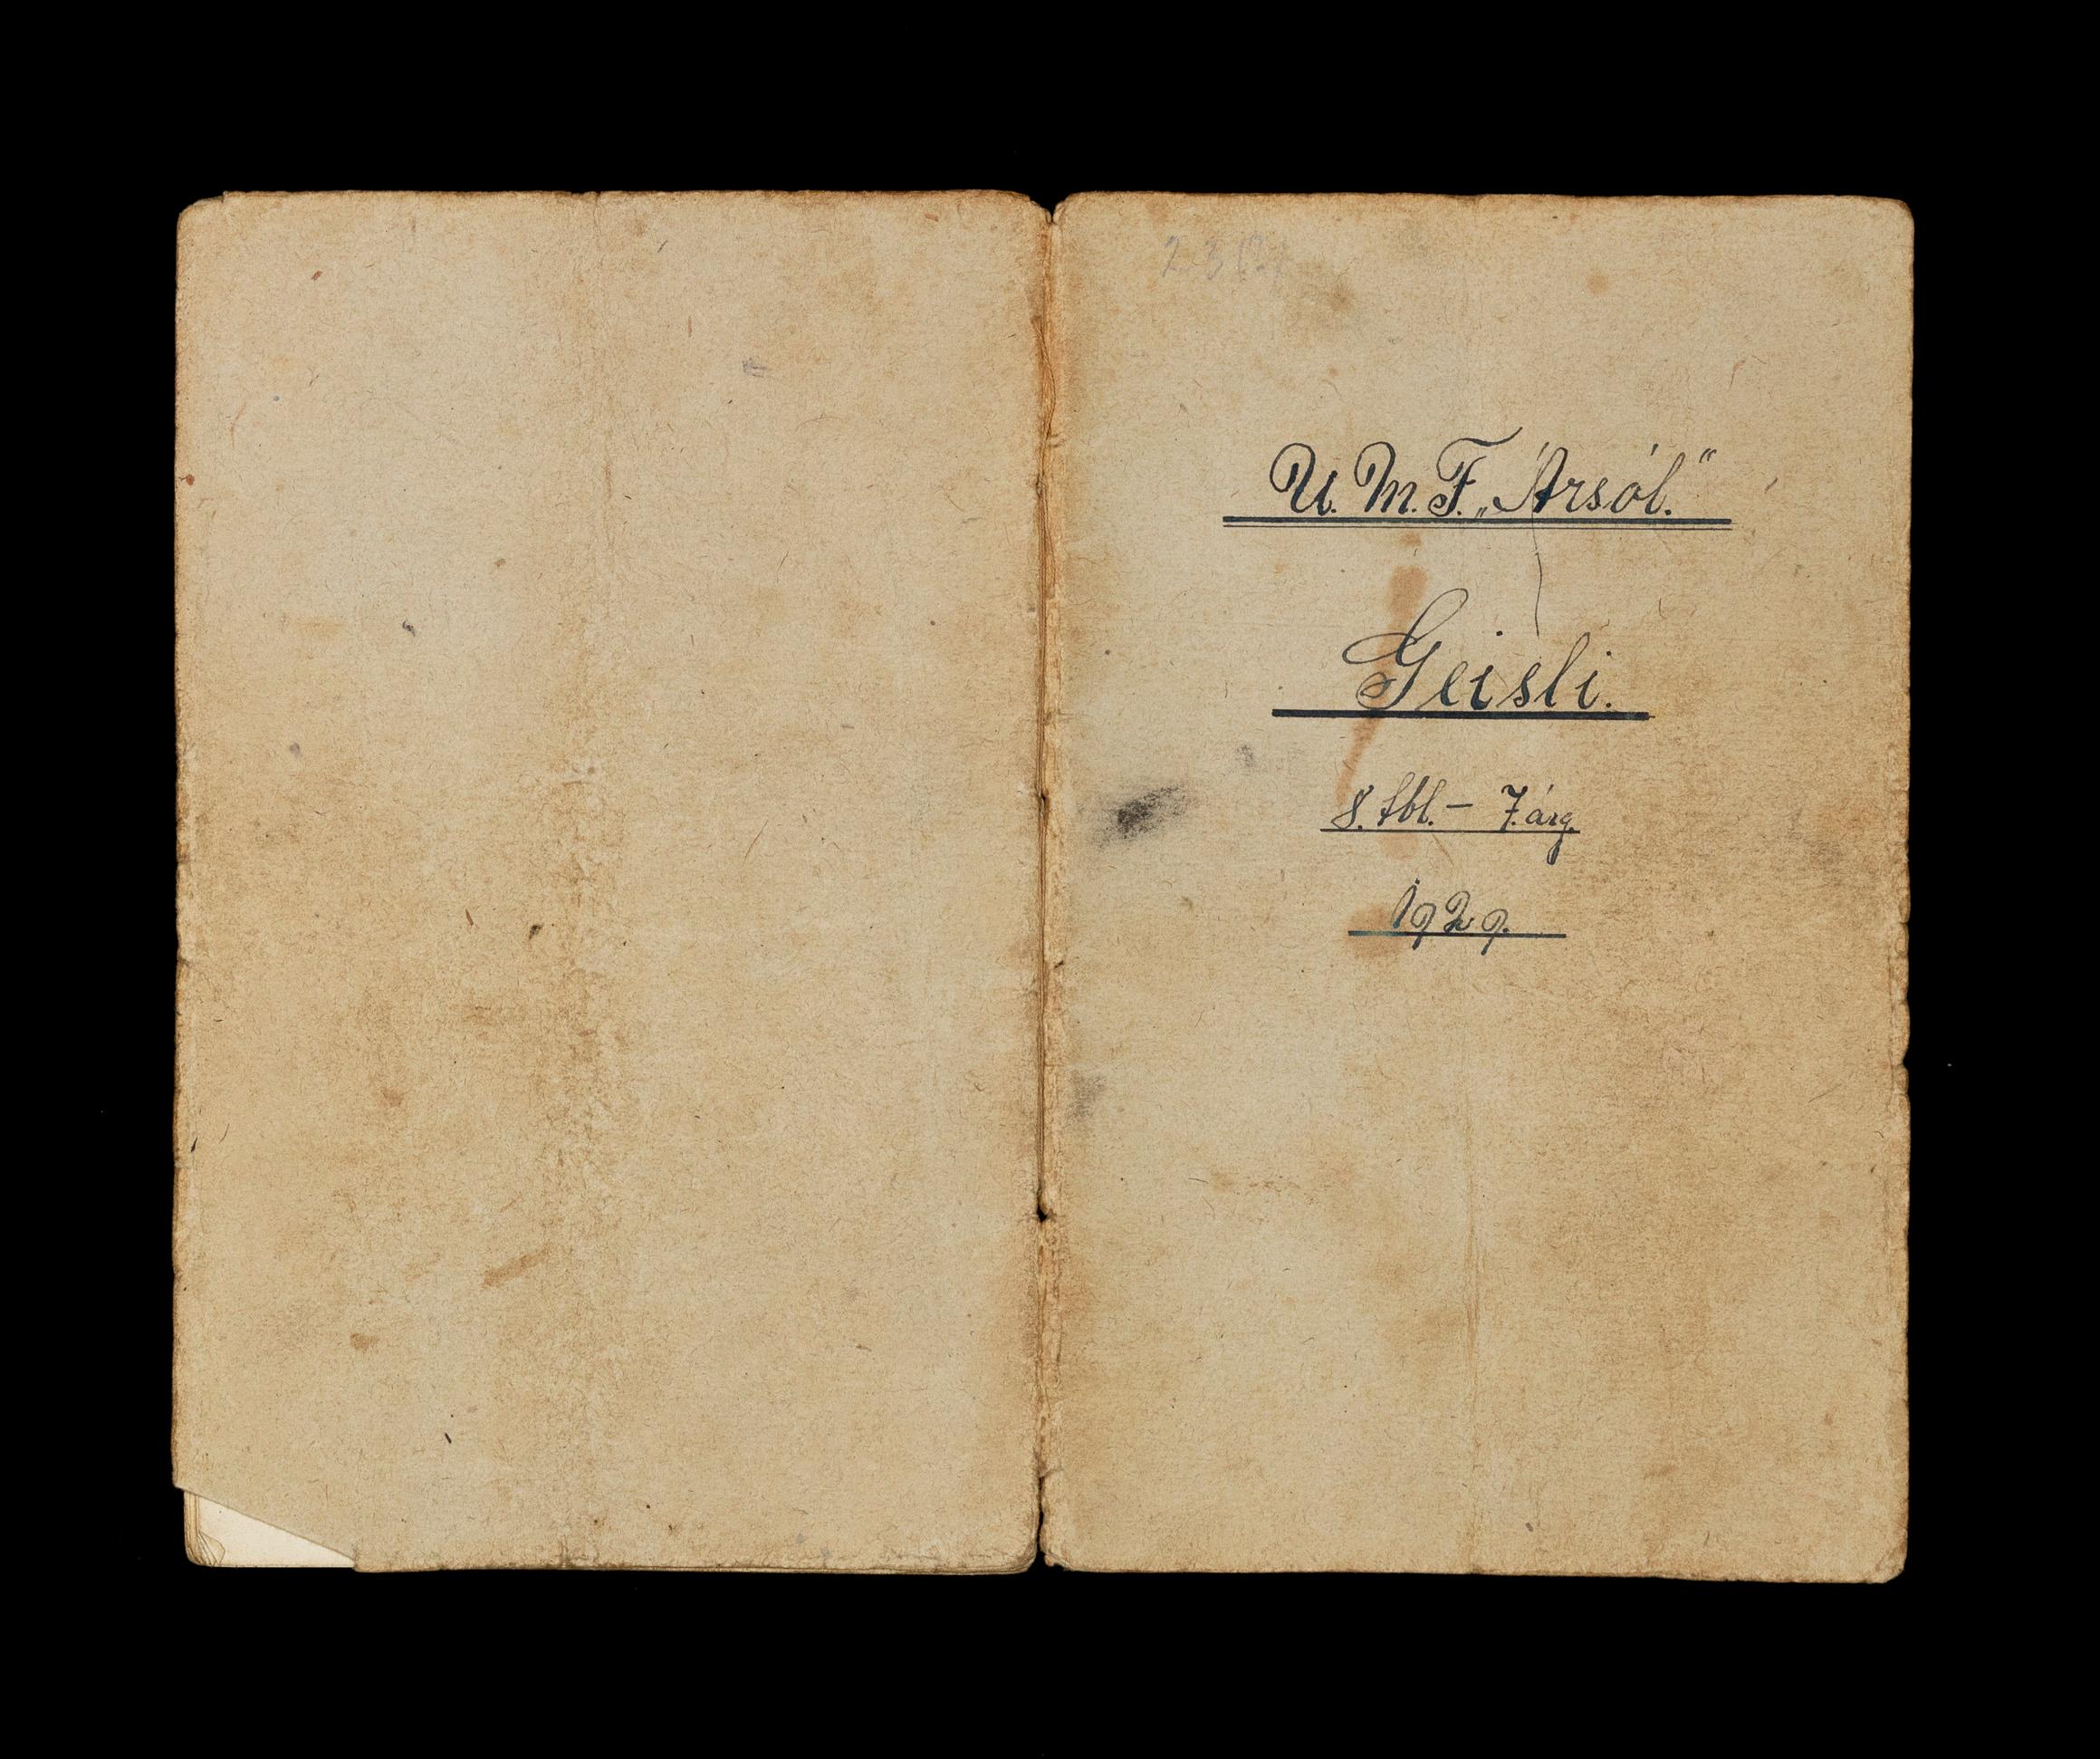 U. M. F. „Ársól.“
Geisli.
8. tbl. – 7. árg.
1929.